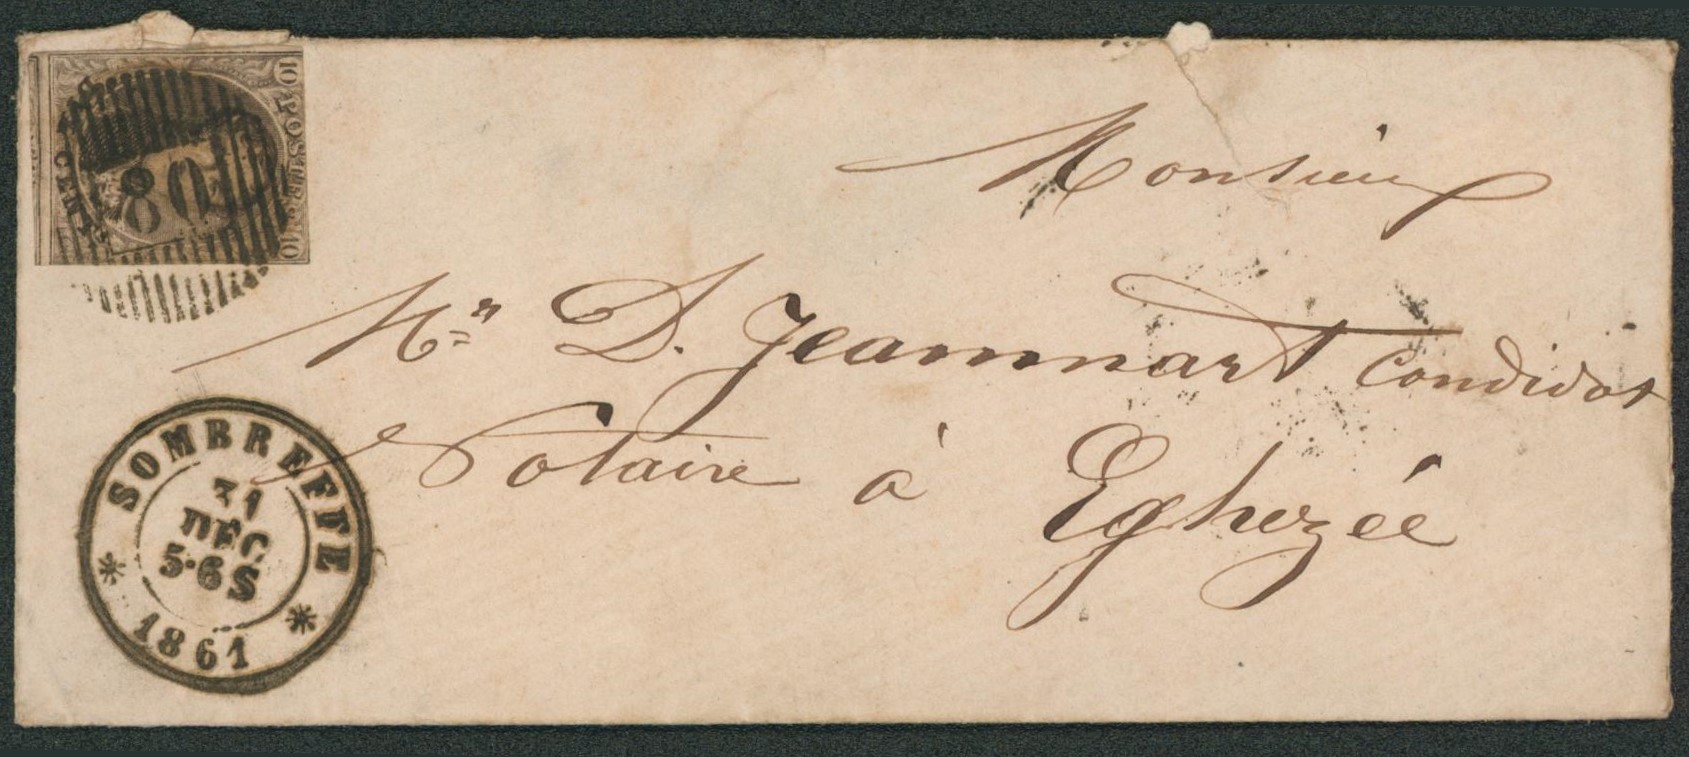 10 POSTES 10
CENTIMES
Monsieur
Mr D. Jeamnart Candidat
Notaire à Eghezée
SOMBREFFE
31
DEC
5·6S
1861